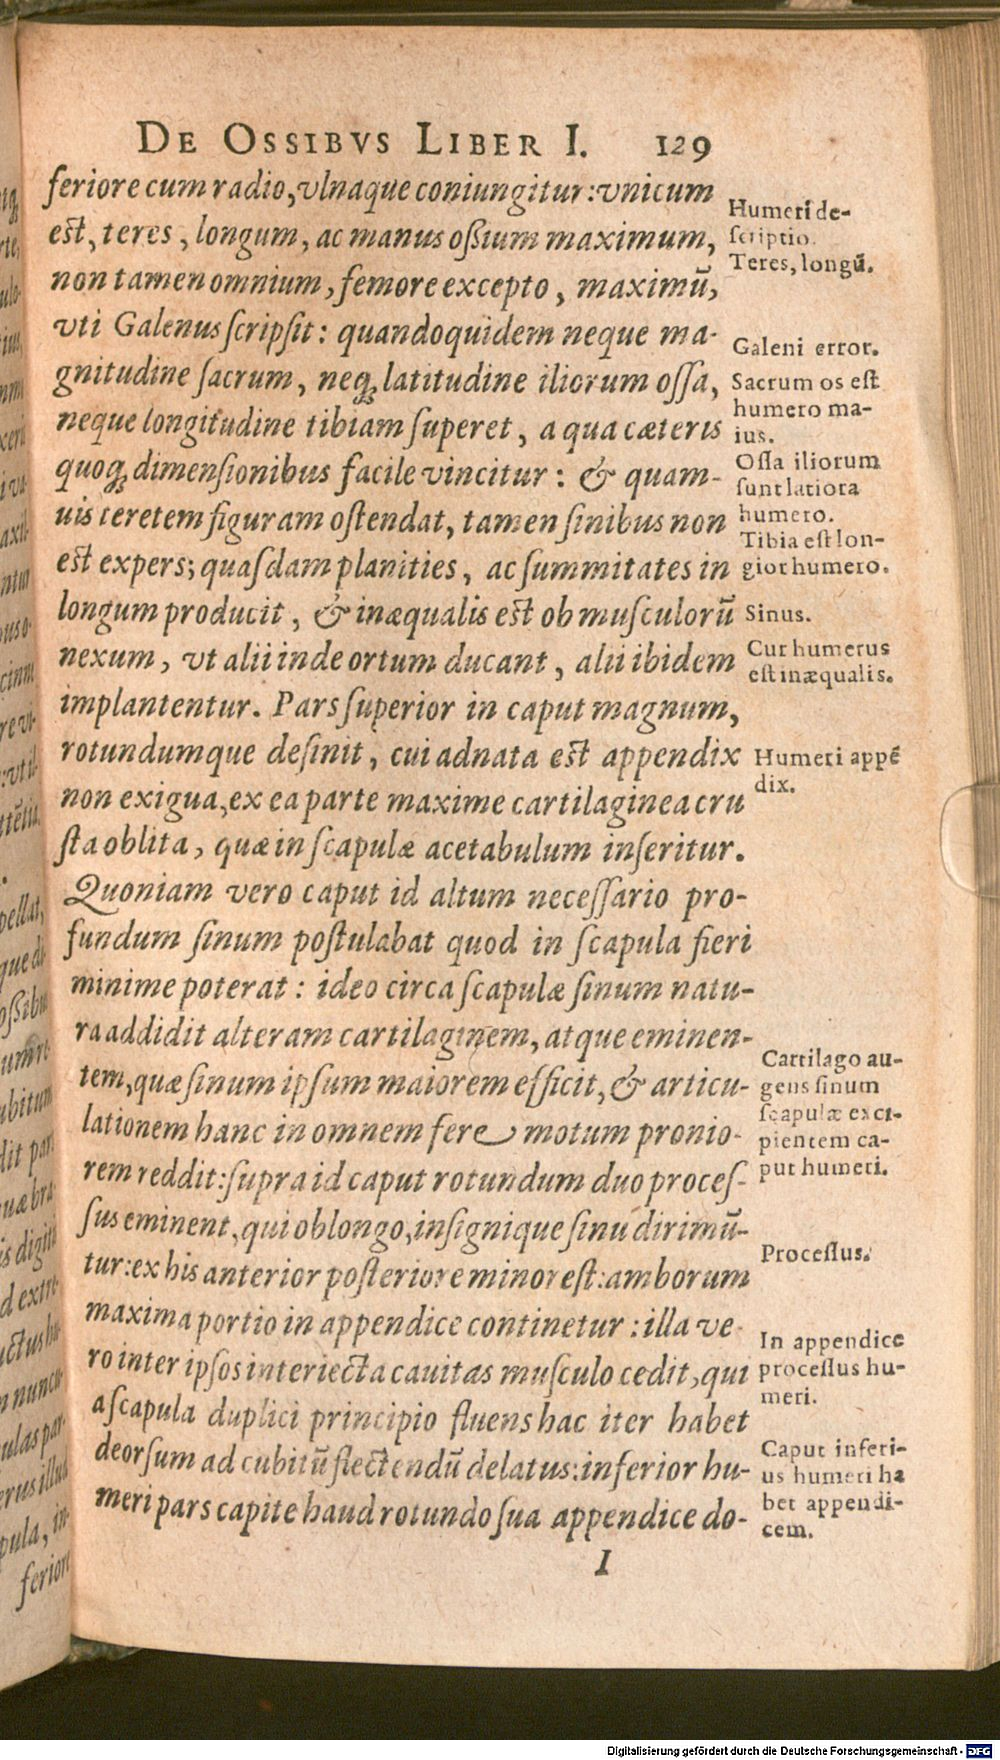 DE OSSIBVS LIBER I. 129
feriore cum radio, vlnaque coniungitur: vnicum
est, teres, longum, ac manus ossium maximum,
non tamen omnium, femore excepto, maximũ,
vti Galenus scripsit: quandoquidem neque ma-
gnitudine sacrum, neq; latitudine iliorum ossa,
neque longitudine tibiam superet, a qua cæteris
quoq; dimensionibus facile vincitur: & quam-
uis teretem figuram ostendat, tamen sinibus non
est expers; quasdam planities, ac summitates in
longum producit, & inæqualis est ob musculorũ
nexum, vt alii inde ortum ducant, alii ibidem
implantentur. Pars superior in caput magnum,
rotundumque desinit, cui adnata est appendix
non exigua, ex ea parte maxime cartilaginea cru
sta oblita, quæ in scapulæ acetabulum inseritur.
Quoniam vero caput id altum necessario pro-
fundum sinum postulabat quod in scapula fieri
minime poterat: ideo circa scapulæ sinum natu-
ra addidit alteram cartilaginem, atque eminen-
tem, quæ sinum ipsum maiorem efficit, & articu-
lationem hanc in omnem fere motum pronio-
rem reddit: supra id caput rotundum duo proces-
sus eminent, qui oblongo, insignique sinu dirimũ-
tur: ex his anterior posteriore minor est: amborum
maxima portio in appendice continetur: illa ve-
ro inter ipsos interiecta cauitas musculo cedit, qui
a scapula duplici principio fluens hac iter habet
deorsum ad cubitũ flectendũ delatus: inferior hu-
meri pars capite haud rotundo sua appendice do-
I
Humeri de-
scriptio.
Teres, longũ.
Galeni error.
Sacrum os est
humero ma-
ius.
Ossa iliorum
sunt latiora
humero.
Tibia est lon-
gior humero.
Sinus.
Cur humerus
est inæqualis.
Humeri appẽ
dix.
Cartilago au-
gens sinum
scapulæ exci-
pientem ca-
put humeri.
Processus.
In appendice
processus hu-
meri.
Caput inferi-
us humeri ha
bet appendi-
cem.
feriore
Digitalisierung gefördert durch die Deutsche Forschungsgemeinschaft - DFG